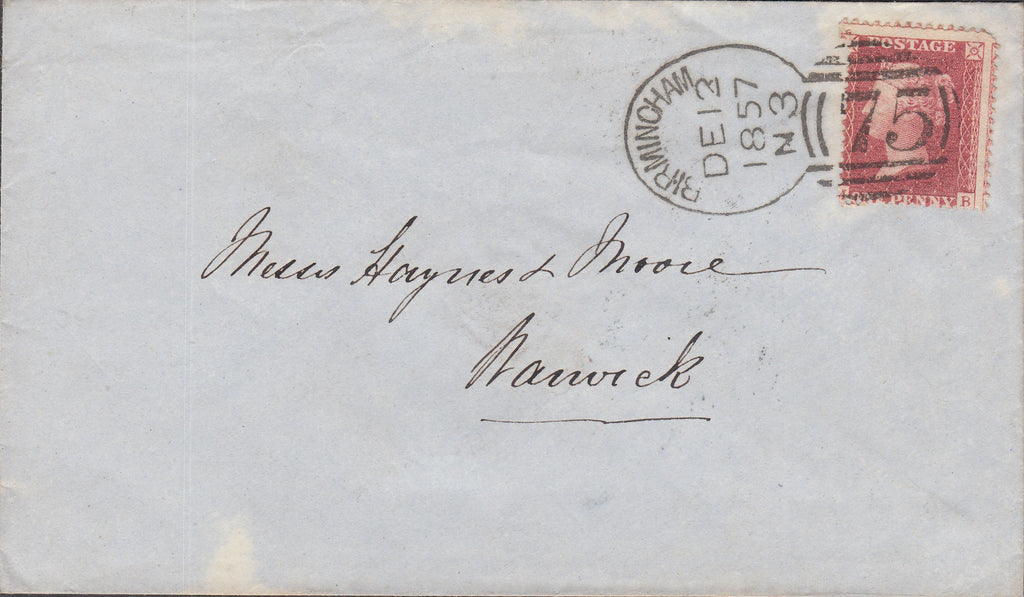 BIRMINGHAM
DE 12
1857
N 3
75
POSTAGE
PENNY B
Messrs Haynes & Moore
Warwick